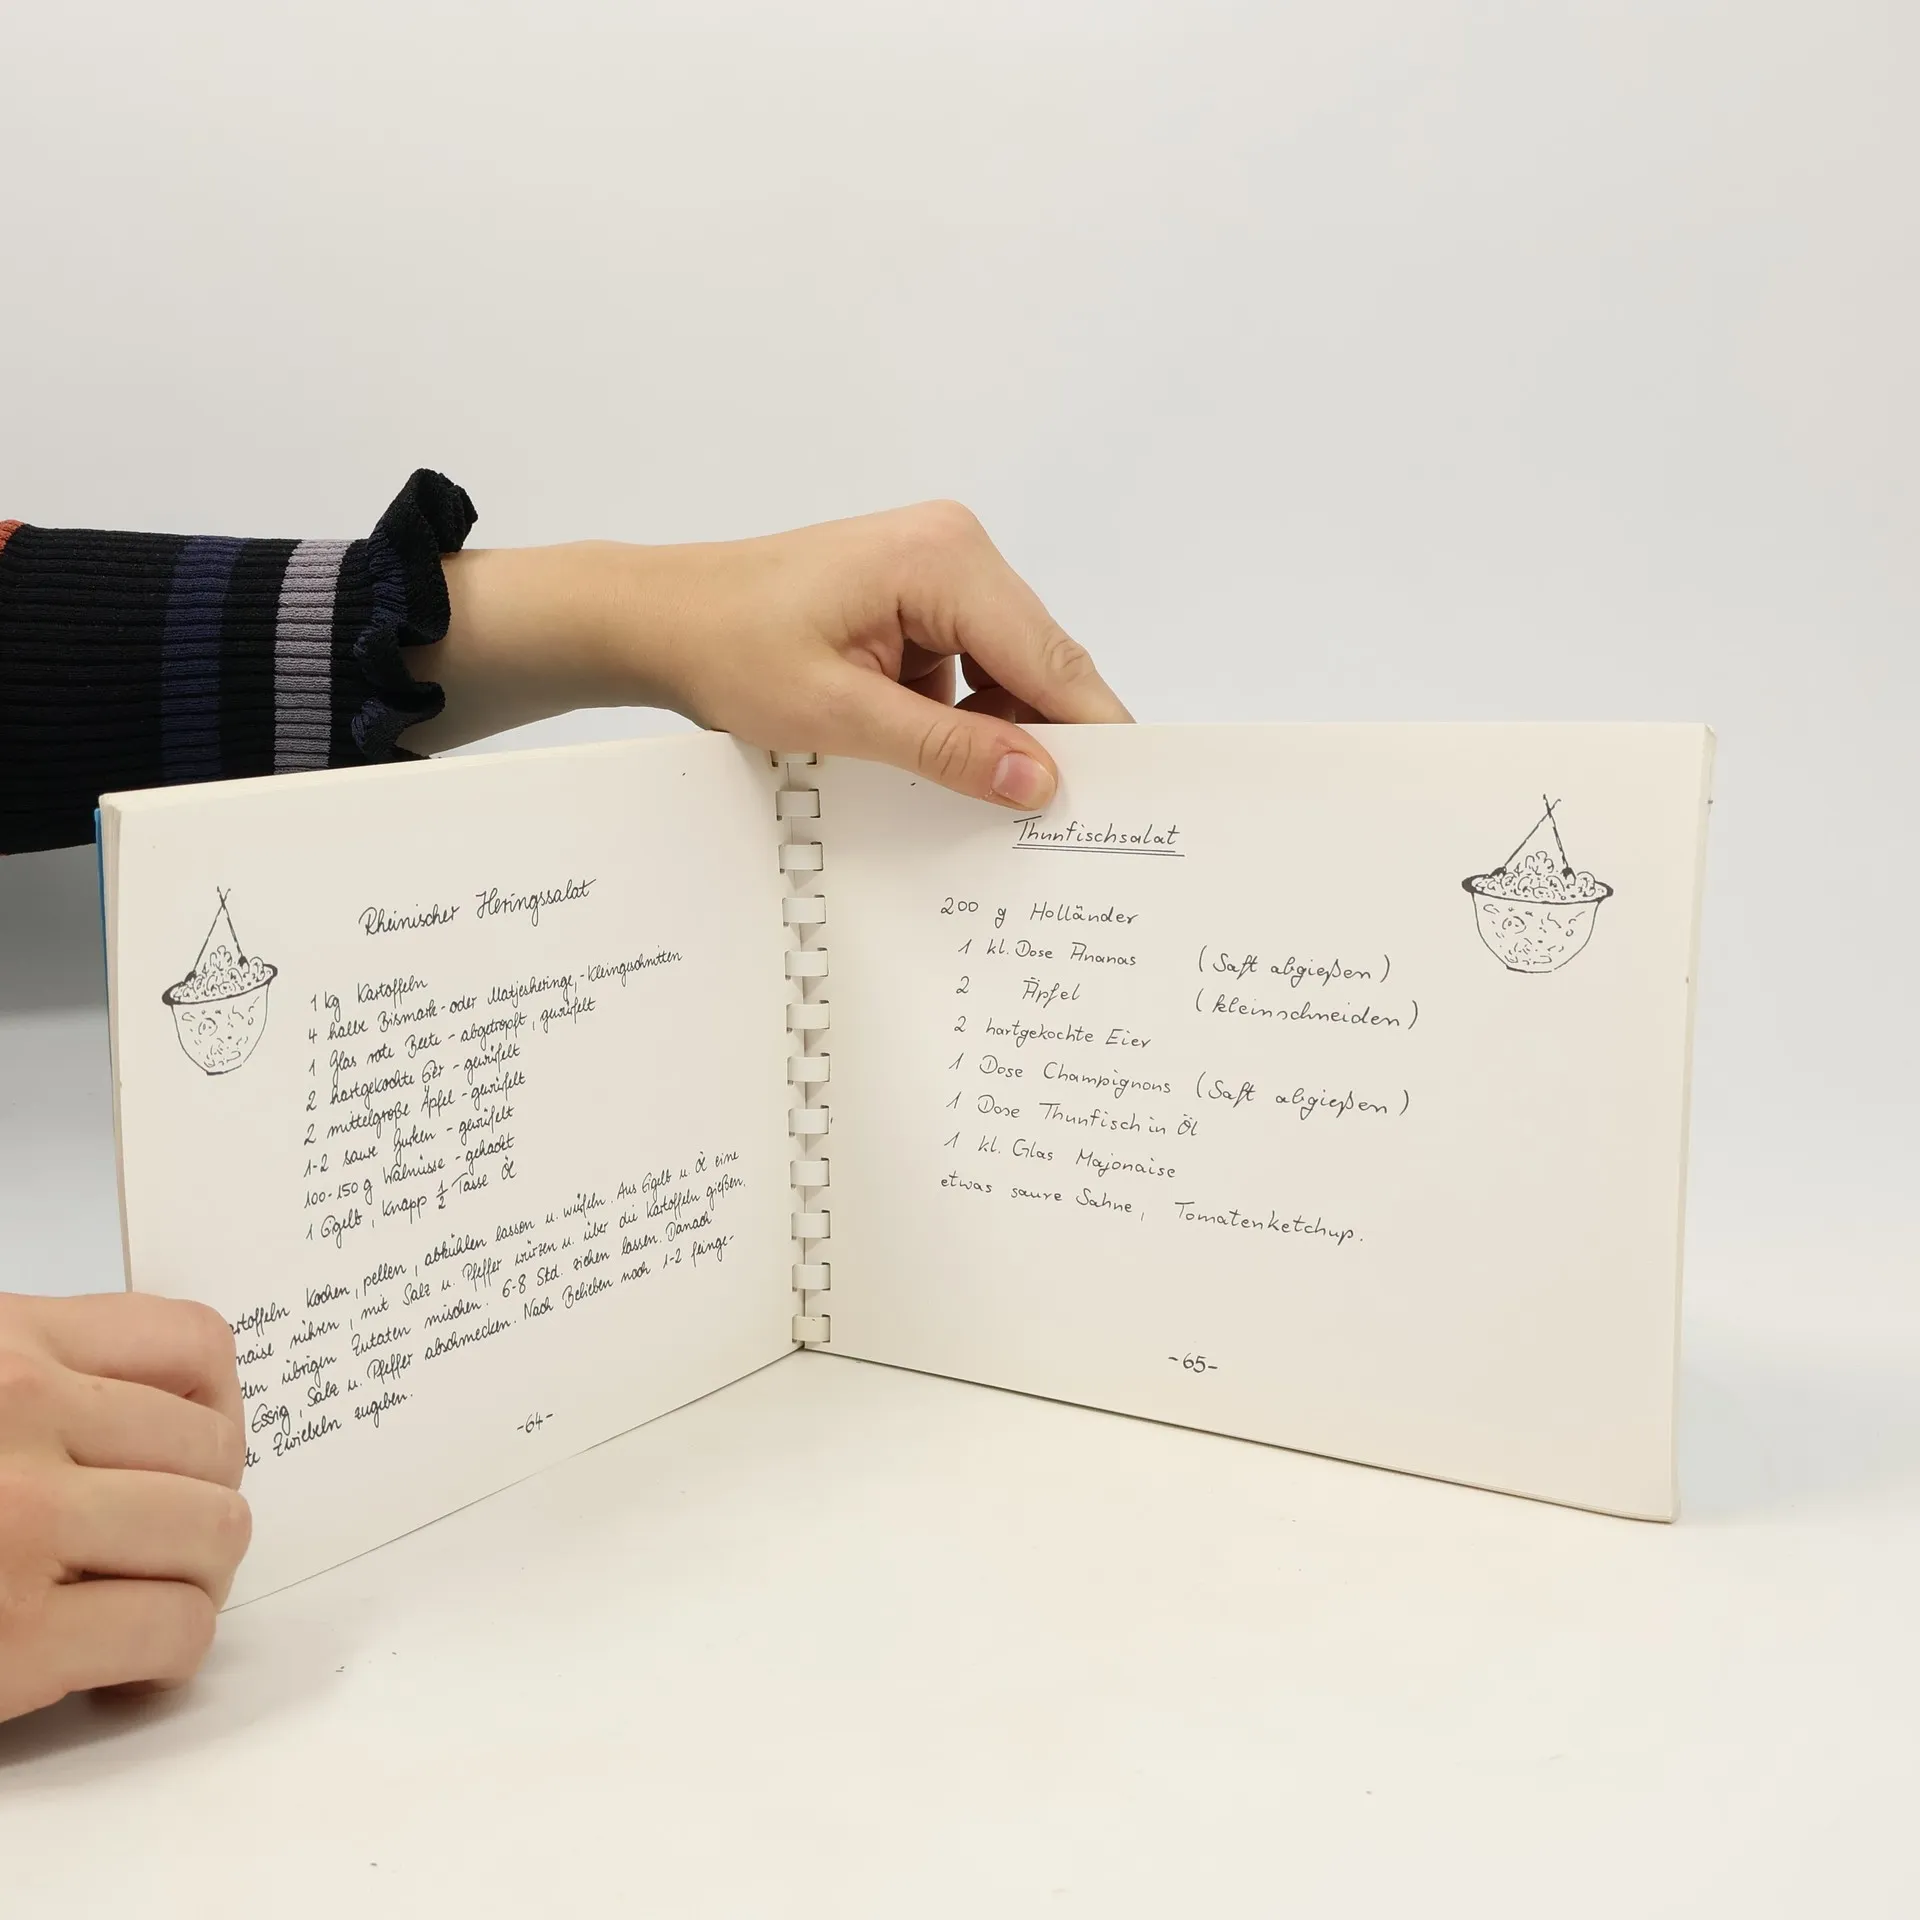 Rheinischer Heringssalat
1 kg Kartoffeln
4 halbe Bismark- oder Matjesheringe,- kleingeschnitten
1 Glas rote Beete - abgetropft, gewürfelt
2 hartgekochte Eier - gewürfelt
2 mittelgroße Äpfel - gewürfelt
1-2 saure Gurken - gewürfelt
100-150 g Walnüsse - gehackt
1 Eigelb, knapp ½ Tasse Öl
artoffeln kochen, pellen, abkühlen lassen u. würfeln. Aus Eigelb u. Öl eine
naise rühren, mit Salz u. Pfeffer würzen u. über die Kartoffeln gießen.
den übrigen Zutaten mischen. 6-8 Std. ziehen lassen. Danach
Essig, Salz u. Pfeffer abschmecken. Nach Belieben noch 1-2 feinge-
te Zwiebeln zugeben.
-64-
Thunfischsalat
200 g Holländer
1 kl. Dose Ananas (Saft abgießen)
2 Äpfel (kleinschneiden)
2 hartgekochte Eier
1 Dose Champignons (Saft abgießen)
1 Dose Thunfisch in Öl
1 kl. Glas Majonaise
etwas saure Sahne, Tomatenketchup.
-65-